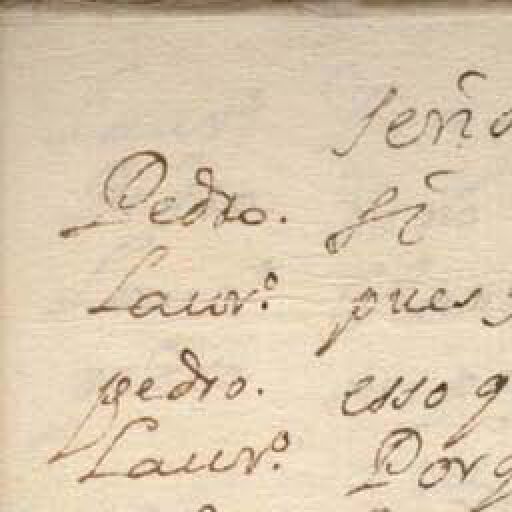 seño
Pedro. si
Laur.º pues
pedro. esso q
Laur.º Porq